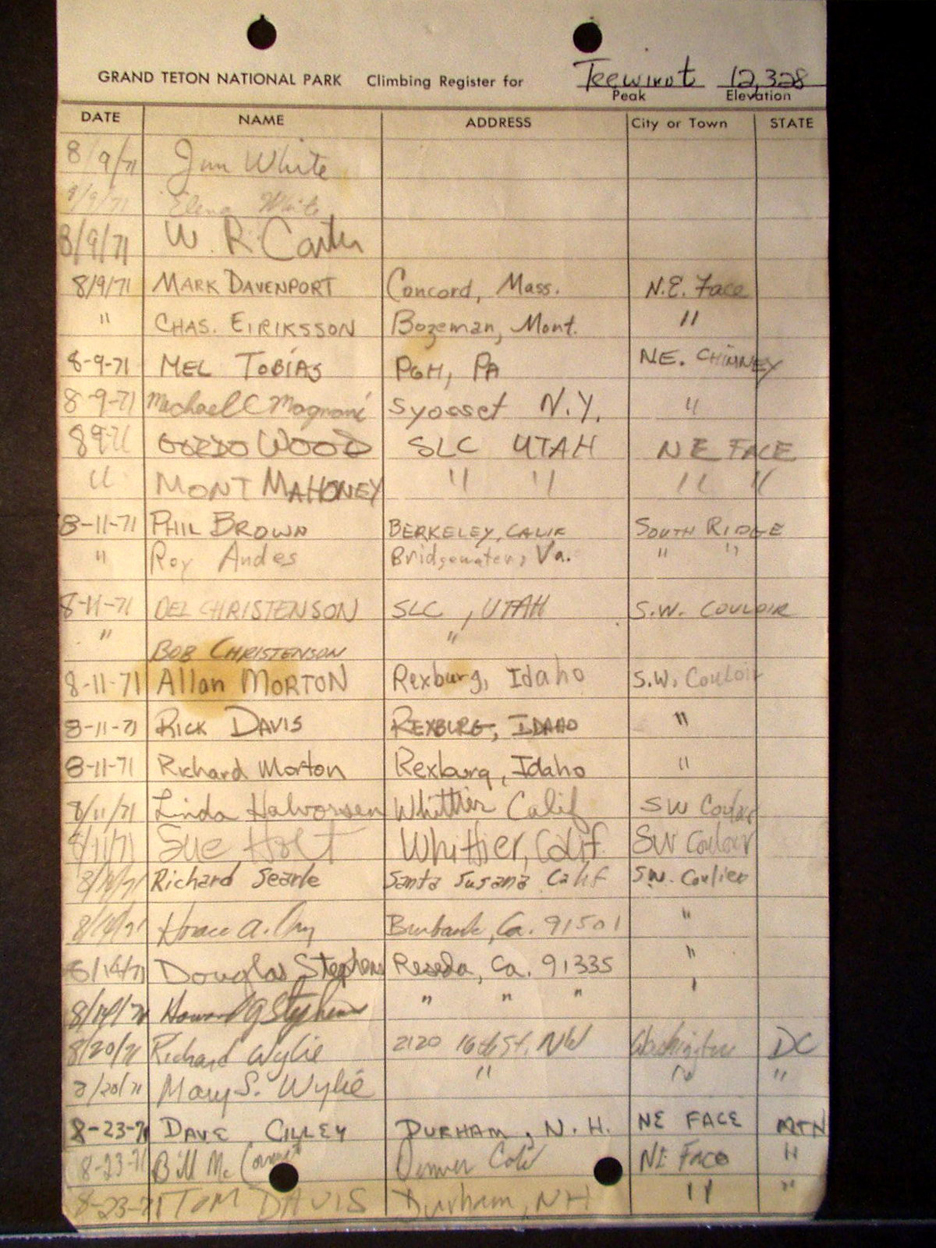 GRAND TETON NATIONAL PARK Climbing Register for Teewinot 12,328
Peak Elevation
DATE NAME ADDRESS City or Town STATE
8/9/71 Jim White
9/9/71 Elena White
8/9/71 W. R. Carter
8/9/71 MARK DAVENPORT Concord, Mass. N.E. Face
" CHAS. EIRIKSSON Bozeman, Mont. "
8-9-71 MEL TOBIAS PGH, PA NE. CHIMNEY
8-9-71 Michael C Magnani Syosset N.Y. "
8971 GORDO WOOD SLC UTAH NE FACE
" MONT MAHONEY " " " "
8-11-71 PHIL BROWN BERKELEY, CALIF SOUTH RIDGE
" Roy Andes Bridgewater, Va. " "
8-11-71 DEL CHRISTENSON SLC, UTAH S.W. COULOIR
" BOB CHRISTENSON "
8-11-71 Allan MORTON Rexburg, Idaho S.W. Couloir
8-11-71 RICK DAVIS REXBURG, IDAHO "
8-11-71 Richard Morton Rexburg, Idaho "
8/11/71 Linda Halvorsen Whittier Calif SW Couloir
8/11/71 Sue Holt Whittier, Calif. SW Couloir
Richard Searle Santa Susana Calif S.W. Coulier
Horace A. Burbank, Ca. 91501 "
8/14/71 Douglas Stephens Reseda, Ca. 91335 "
8/14/71 Howard G Stephens " " " "
8/20/71 Richard Wylie 2120 16th St. NW Washington DC
8/20/71 Mary S. Wylie " " "
8-23-71 DAVE CILLEY DURHAM, N.H. NE FACE MTN
8-23-71 Bill Denver Colo NE Face "
8-23-71 TOM DAVIS Durham, NH " "